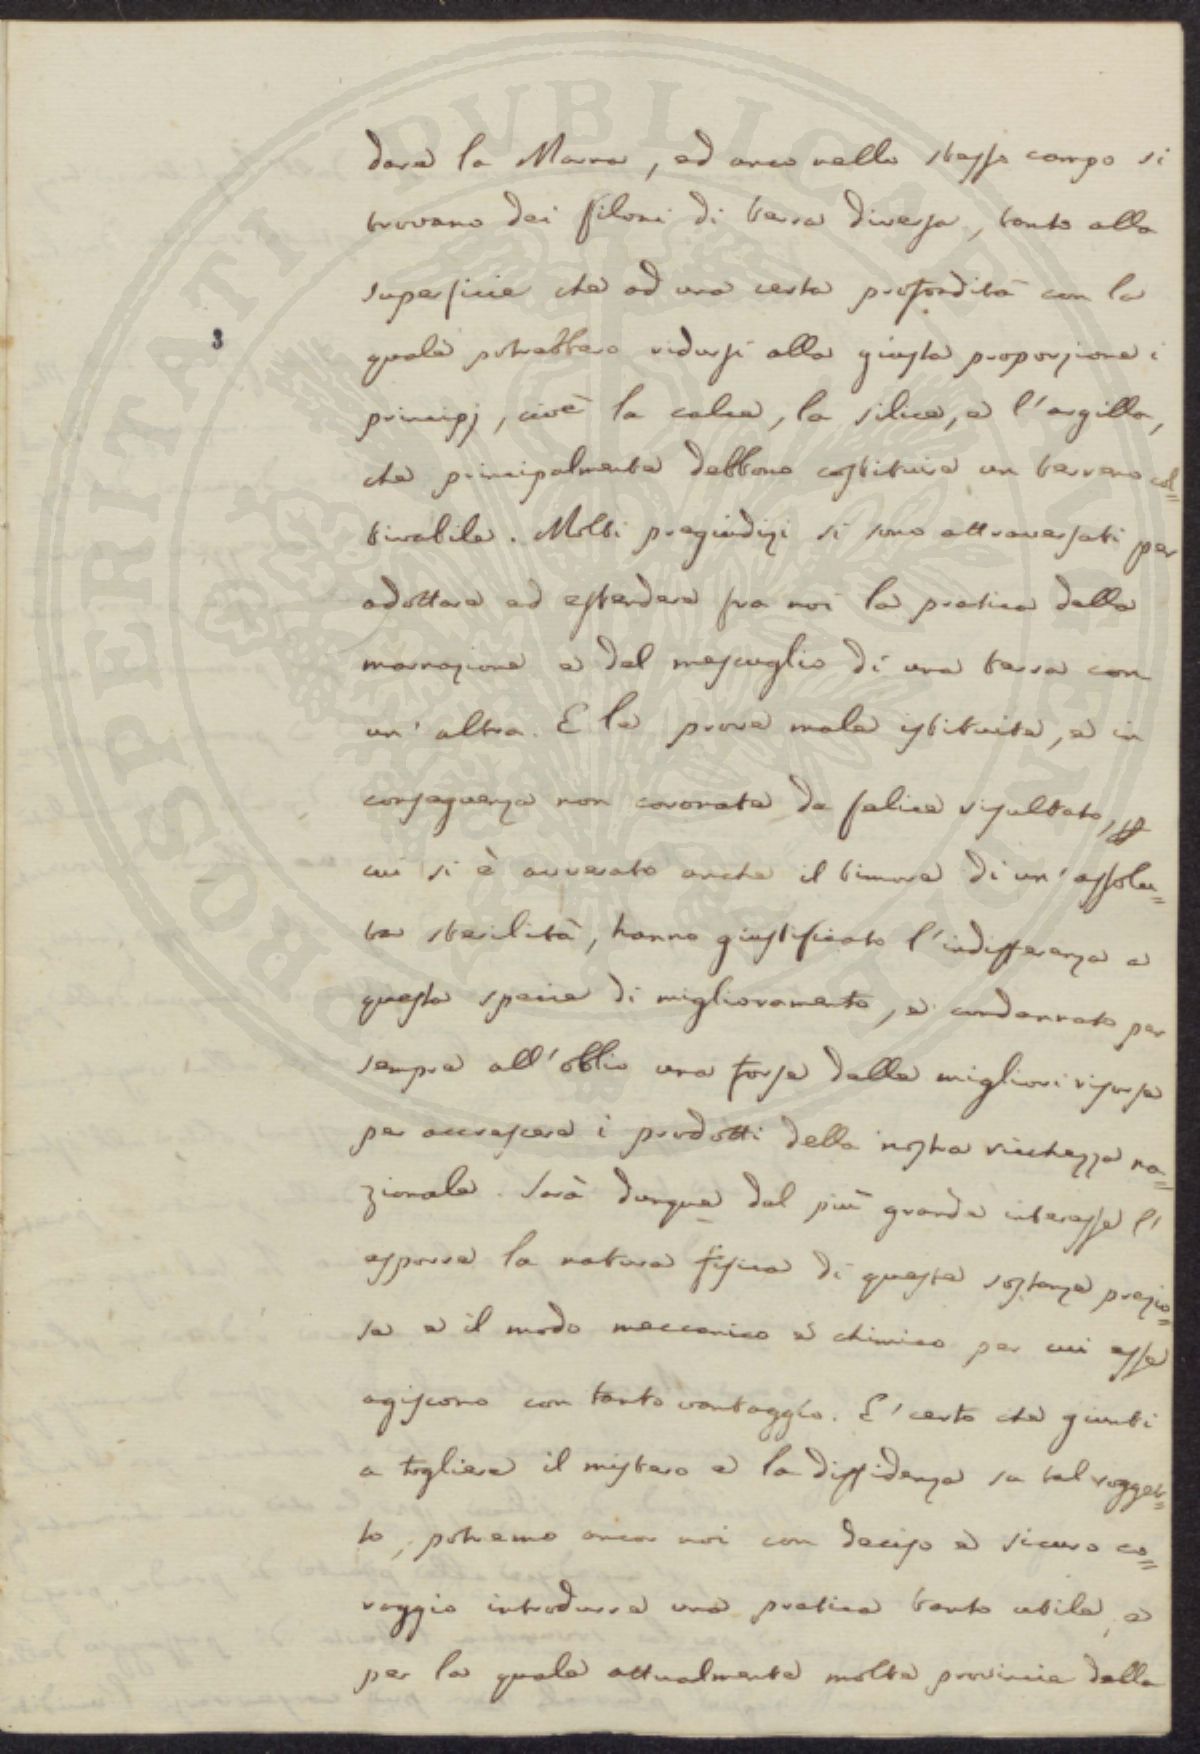 dare la Marna, ed anco nello stesso campo si
trovano dei filoni di terra diversa, tanto alla
superficie che ad una certa profondità con la
3
quale potrebbero ridursi alla giusta proporzione i
principj, cioè la calce, la silice, e l'argilla,
che principalmente debbono costituire un terreno col=
tivabile. Molti pregiudizi si sono attraversati per
adottare ed estendere fra noi la pratica della
marnazione e del mescuglio di una terra con
un'altra. E le prove male istituite, e in
conseguenza non coronate da felice risultato,
cui si è avverato anche il timore di un'assolu=
ta sterilità, hanno giustificato l'indifferenza a
questa specie di miglioramento, e condannato per
sempre all'oblio una forse delle migliori risorse
per accrescere i prodotti della nostra ricchezza na=
zionale. Sarà dunque del più grande interesse l'
esporre la natura fisica di queste sostanze prezio=
se e il modo meccanico e chimico per cui esse
agiscono con tanto vantaggio. E' certo che giunti
a togliere il mistero e la diffidenza su tal sogget=
to, potremo ancor noi con deciso e sicuro co=
raggio introdurre una pratica tanto utile, e
per la quale attualmente molte provincie della
PROSPERITATI PUBLICAE AUGENDAE